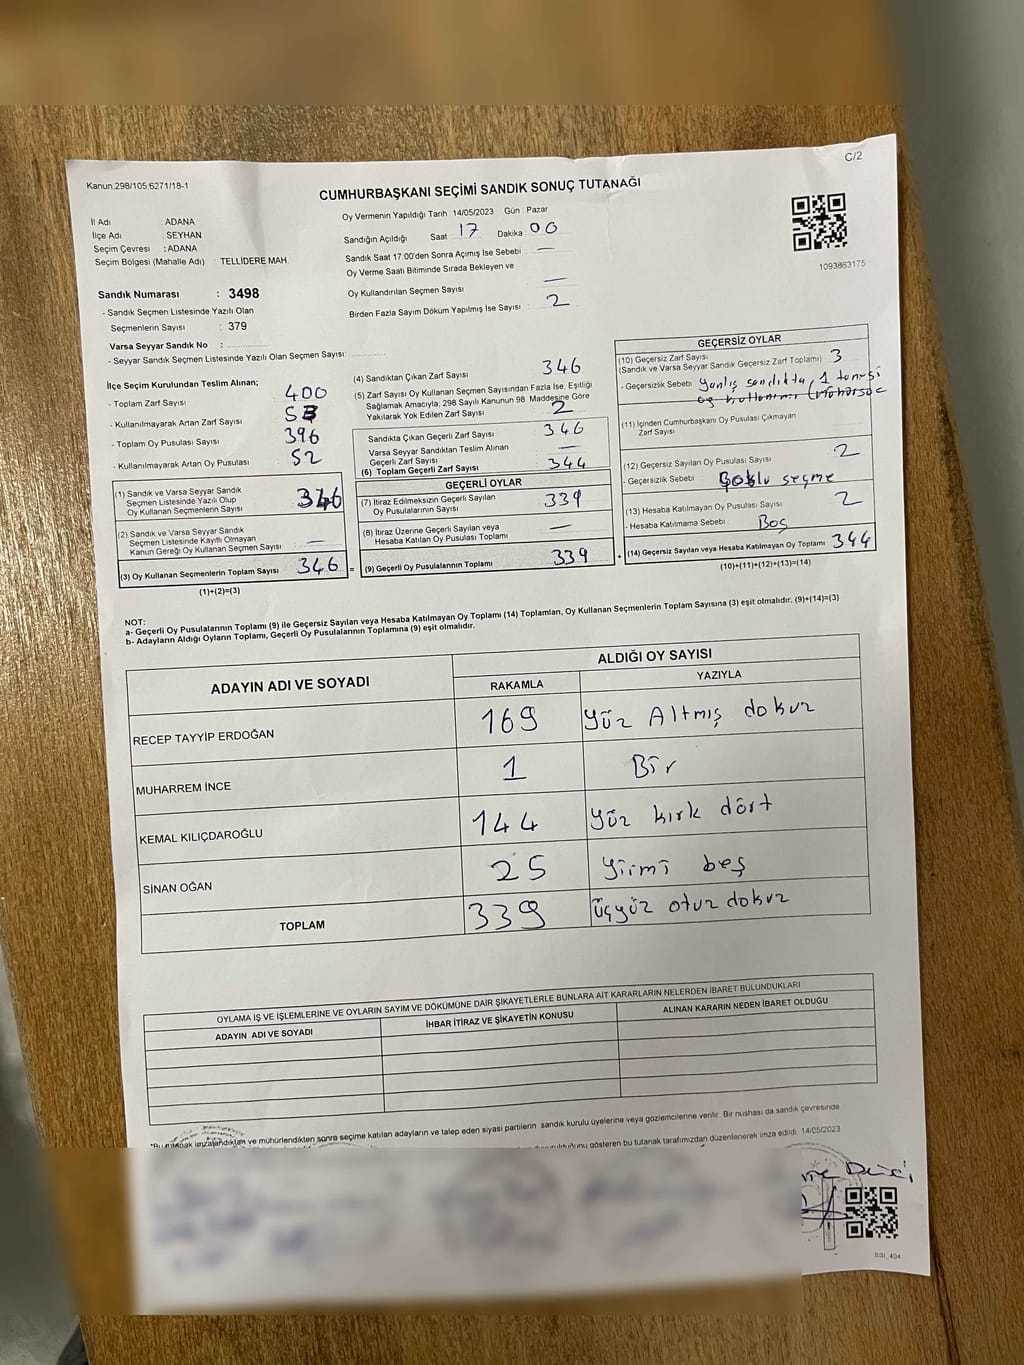 C/2
Kanun:298/105,6271/18-1
CUMHURBAŞKANI SEÇİMİ SANDIK SONUÇ TUTANAĞI
İl Adı : ADANA
İlçe Adı : SEYHAN
Seçim Çevresi : ADANA
Seçim Bölgesi (Mahalle Adı) : TELLİDERE MAH.
Sandık Numarası : 3498
- Sandık Seçmen Listesinde Yazılı Olan
Seçmenlerin Sayısı : 379
Varsa Seyyar Sandık No :
- Seyyar Sandık Seçmen Listesinde Yazılı Olan Seçmen Sayısı:
Oy Vermenin Yapıldığı Tarih :14/05/2023 Gün : Pazar
Sandığın Açıldığı Saat 17 Dakika 00
Sandık Saat 17:00'den Sonra Açımış İse Sebebi —
Oy Verme Saati Bitiminde Sırada Bekleyen ve
Oy Kullandırılan Seçmen Sayısı —
Birden Fazla Sayım Döküm Yapılmış İse Sayısı : 2
1093863175
İlçe Seçim Kurulundan Teslim Alınan;
- Toplam Zarf Sayısı 400
- Kullanılmayarak Artan Zarf Sayısı
- Toplam Oy Pusulası Sayısı 396
- Kullanılmayarak Artan Oy Pusulası 52
(1) Sandık ve Varsa Seyyar Sandık
Seçmen Listesinde Yazılı Olup
Oy Kullanan Seçmenlerin Sayısı 346
(2) Sandık ve Varsa Seyyar Sandık
Seçmen Listesinde Kayıtlı Olmayan
Kanun Gereği Oy Kullanan Seçmen Sayısı —
(3) Oy Kullanan Seçmenlerin Toplam Sayısı 346
(1)+(2)=(3)
(4) Sandıktan Çıkan Zarf Sayısı 346
(5) Zarf Sayısı Oy Kullanan Seçmen Sayısından Fazla İse, Eşitliği
Sağlamak Amacıyla; 298 Sayılı Kanunun 98. Maddesine Göre
Yakılarak Yok Edilen Zarf Sayısı 2
Sandıkta Çıkan Geçerli Zarf Sayısı 346
Varsa Seyyar Sandıktan Teslim Alınan
Geçerli Zarf Sayısı —
(6) Toplam Geçerli Zarf Sayısı 344
GEÇERLİ OYLAR
(7) İtiraz Edilmeksizin Geçerli Sayılan
Oy Pusulalarının Sayısı 339
(8) İtiraz Üzerine Geçerli Sayılan veya
Hesaba Katılan Oy Pusulası Toplamı —
= (9) Geçerli Oy Pusulalarının Toplamı 339
GEÇERSİZ OYLAR
(10) Geçersiz Zarf Sayısı
(Sandık ve Varsa Seyyar Sandık Geçersiz Zarf Toplamı) 3
- Geçersizlik Sebebi Yanlış sandıkta, 1 tanesi
oy kullanımı
(11) İçinden Cumhurbaşkanı Oy Pusulası Çıkmayan
Zarf Sayısı
(12) Geçersiz Sayılan Oy Pusulası Sayısı 2
- Geçersizlik Sebebi Çoklu seçme
(13) Hesaba Katılmayan Oy Pusulası Sayısı 2
- Hesaba Katılmama Sebebi Boş
+ (14) Geçersiz Sayılan veya Hesaba Katılmayan Oy Toplamı 344
(10)+(11)+(12)+(13)=(14)
NOT:
a- Geçerli Oy Pusulalarının Toplamı (9) ile Geçersiz Sayılan veya Hesaba Katılmayan Oy Toplamı (14) Toplamları, Oy Kullanan Seçmenlerin Toplam Sayısına (3) eşit olmalıdır. (9)+(14)=(3)
b- Adayların Aldığı Oyların Toplamı, Geçerli Oy Pusulalarının Toplamına (9) eşit olmalıdır.
ADAYIN ADI VE SOYADI
ALDIĞI OY SAYISI
RAKAMLA YAZIYLA
RECEP TAYYİP ERDOĞAN 169 Yüz Altmış dokuz
MUHARREM İNCE 1 Bir
KEMAL KILIÇDAROĞLU 144 Yüz kırk dört
SİNAN OĞAN 25 Yirmi beş
TOPLAM 339 üçyüz otuz dokuz
OYLAMA İŞ VE İŞLEMLERİNE VE OYLARIN SAYIM VE DÖKÜMÜNE DAİR ŞİKAYETLERLE BUNLARA AİT KARARLARIN NELERDEN İBARET BULUNDUKLARI
ADAYIN ADI VE SOYADI İHBAR İTİRAZ VE ŞİKAYETİN KONUSU ALINAN KARARIN NEDEN İBARET OLDUĞU
imzalandıktan ve mühürlendikten sonra seçime katılan adayların ve talep eden siyasi partilerin sandık kurulu üyelerine veya gözlemcilerine verilir. Bir nushası da sandık çevresinde
gösteren bu tutanak tarafımızdan düzenlenerek imza edildi. 14/05/2023